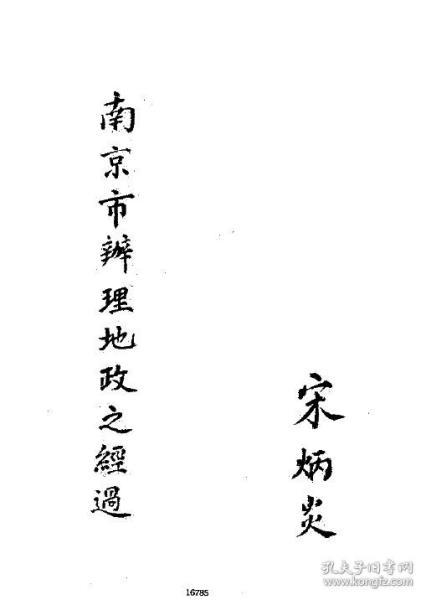 宋炳炎
南京市辦理地政之經過
16785
孔夫子旧书网